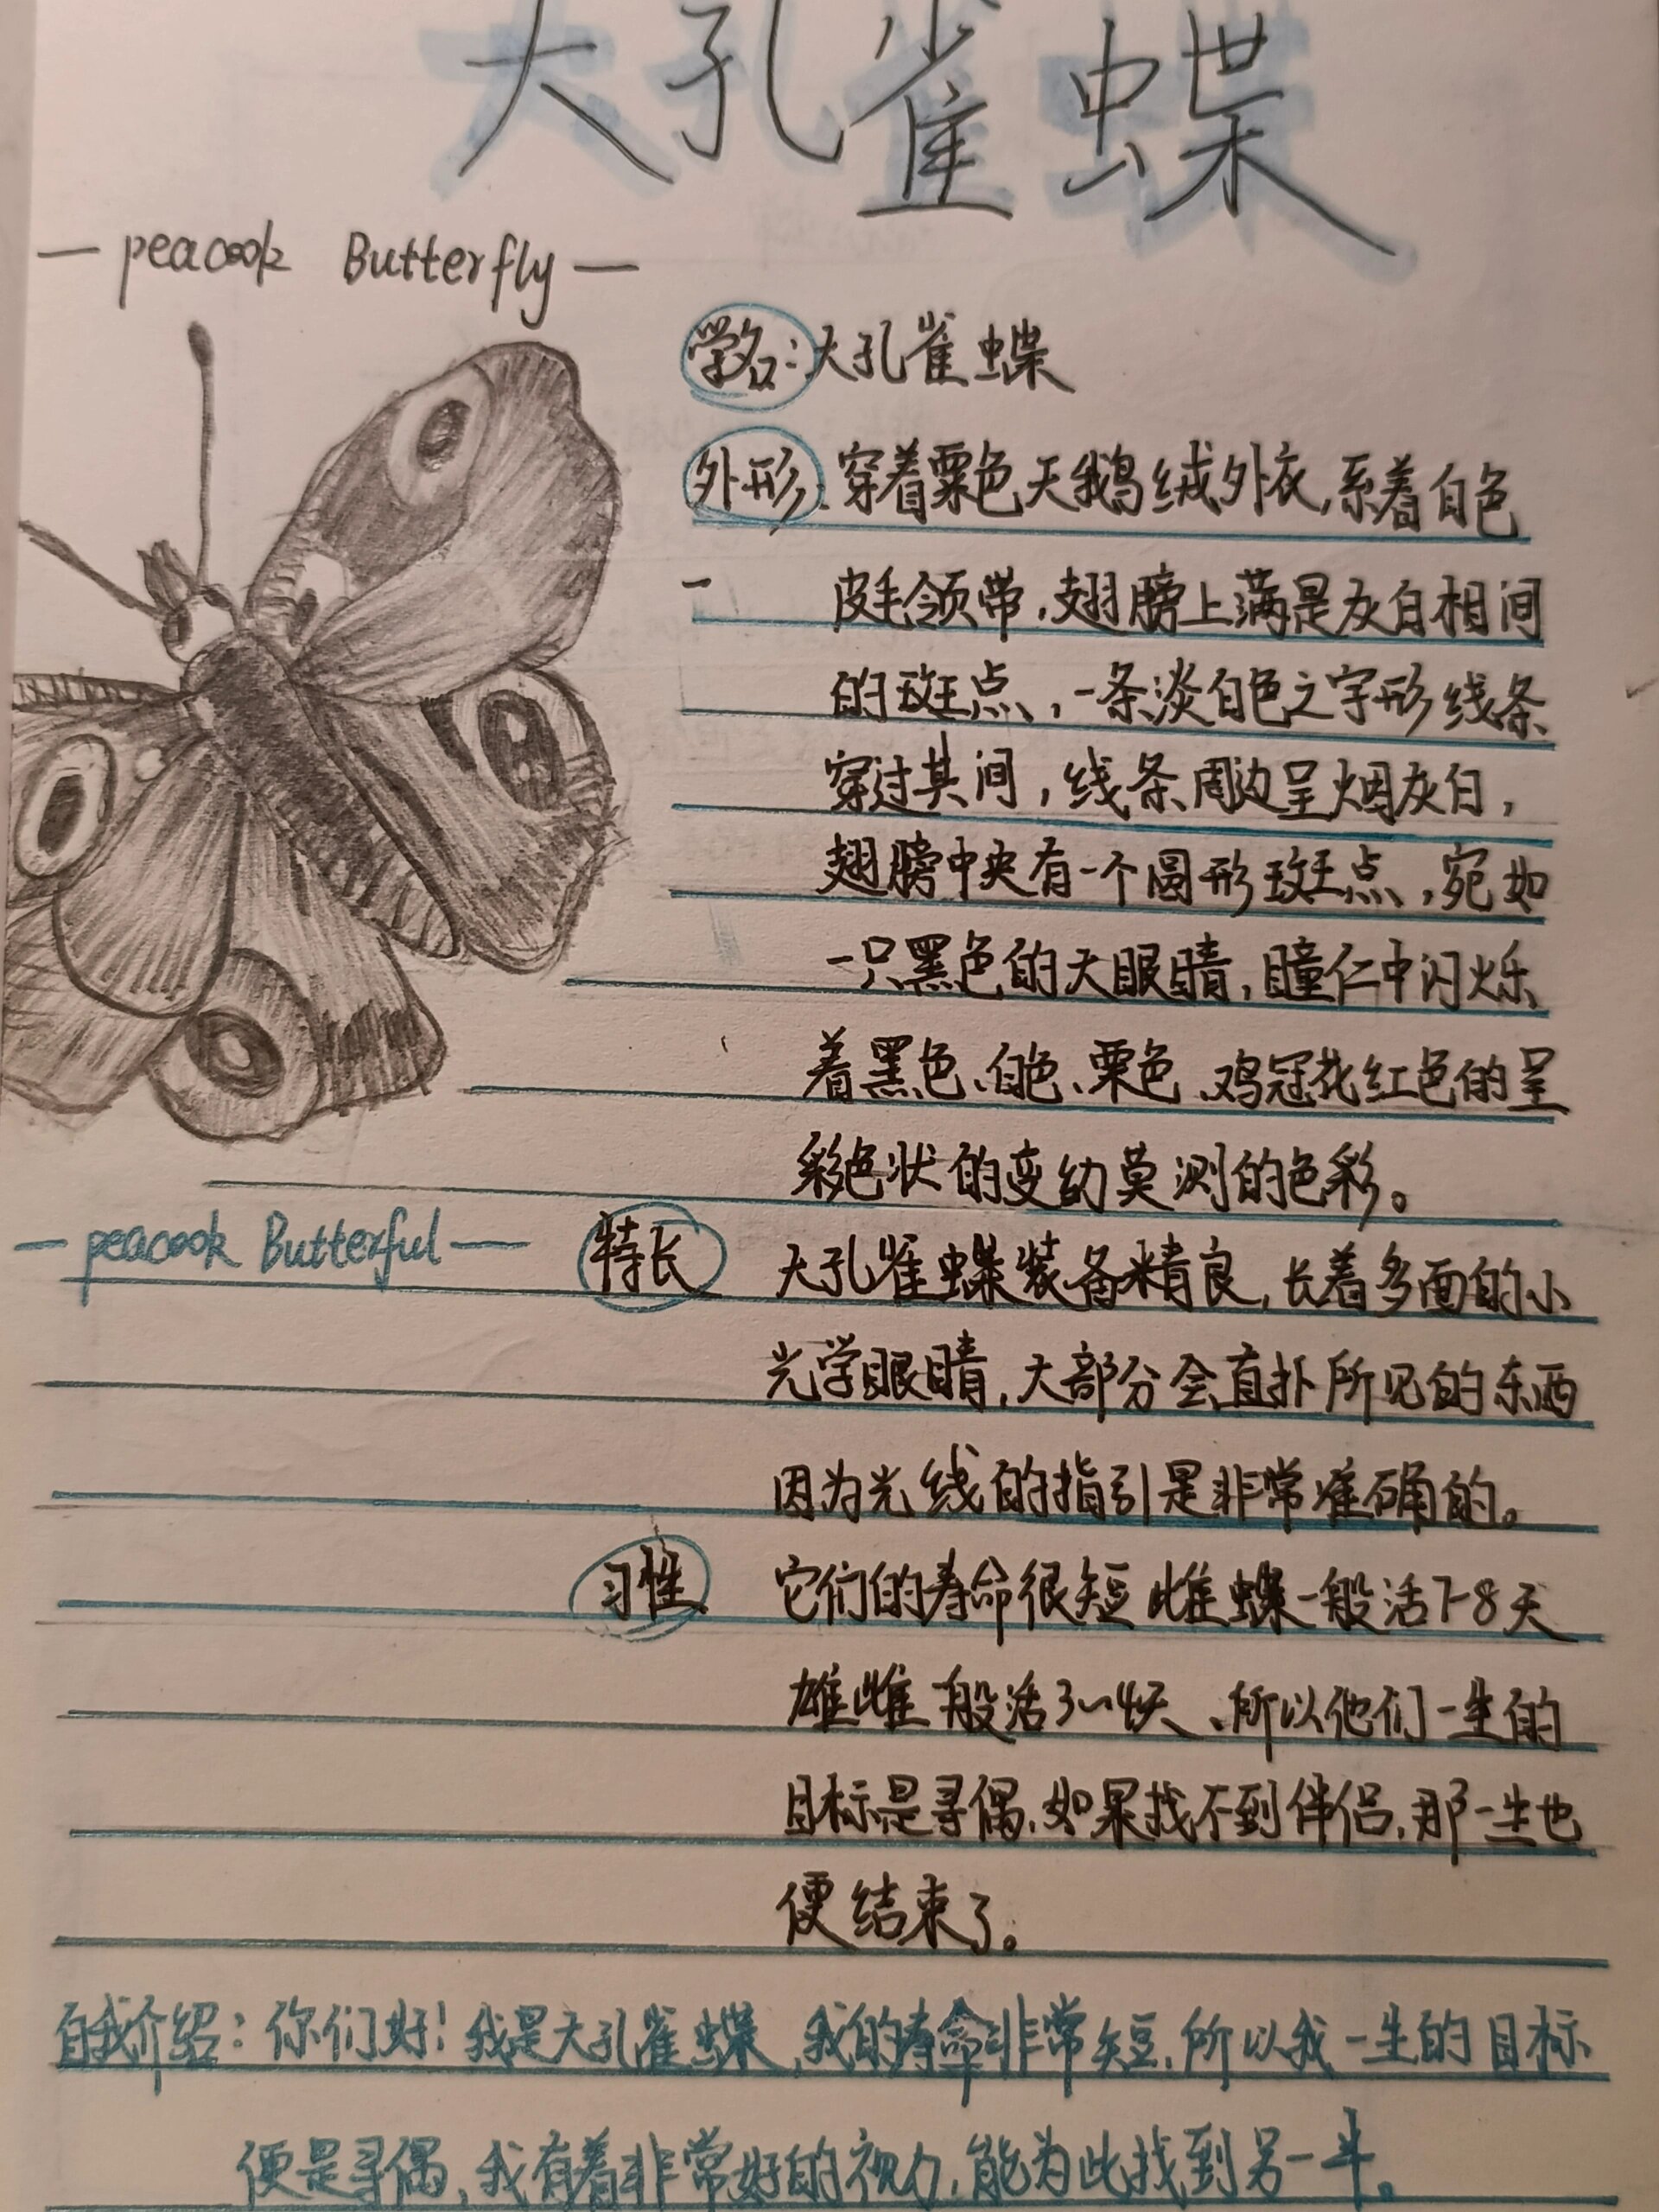 大孔雀蝶
— peacook Butterfly —
学名：大孔雀蝶
外形：穿着栗色天鹅绒外衣，系着白色
皮毛领带，翅膀上满是灰白相间
的斑点，一条淡白色之字形线条
穿过其间，线条周边呈烟灰白，
翅膀中央有一个圆形斑点，宛如
一只黑色的大眼睛，瞳仁中闪烁
着黑色、白色、栗色、鸡冠花红色的呈
彩色状的变幼莫测的色彩。
— peacook Butterful —
特长 大孔雀蝶装备精良，长着多面的小
光学眼睛，大部分会直扑所见的东西
因为光线的指引是非常准确的。
习性 它们的寿命很短 雌蝶一般活7-8天
雄雌一般活3~4天、所以他们一生的
目标是寻偶，如果找不到伴侣，那一生也
便结束了。
自我介绍：你们好！我是大孔雀蝶，我的寿命非常短，所以我一生的目标
便是寻偶，我有着非常好的视力，能为此找到另一半。